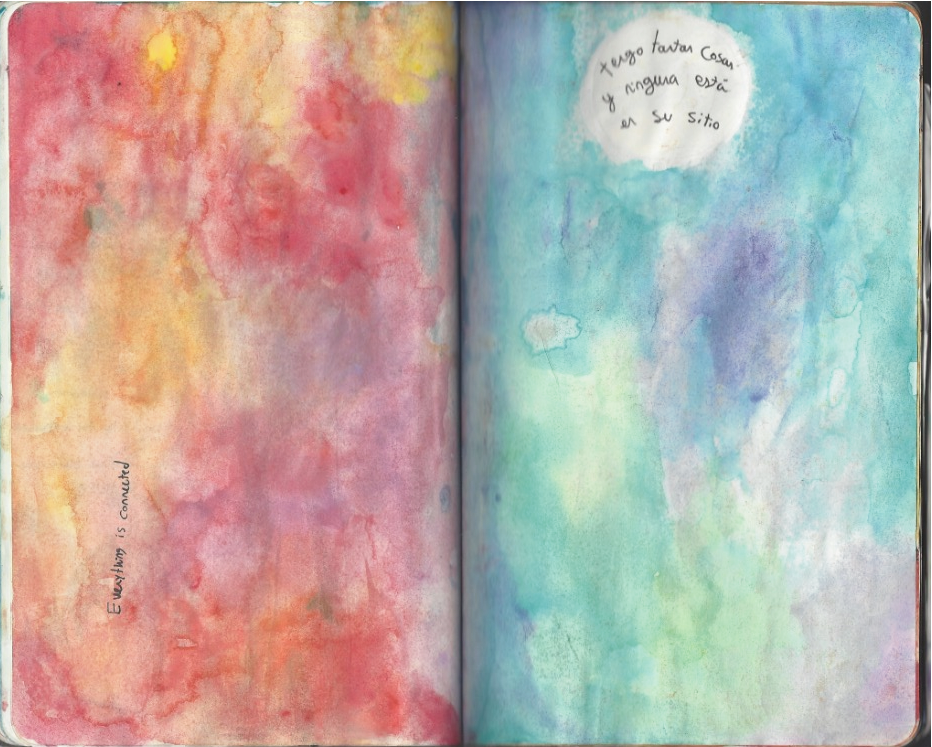 Everything is connected
tengo tantas cosas
y ninguna está
en su sitio